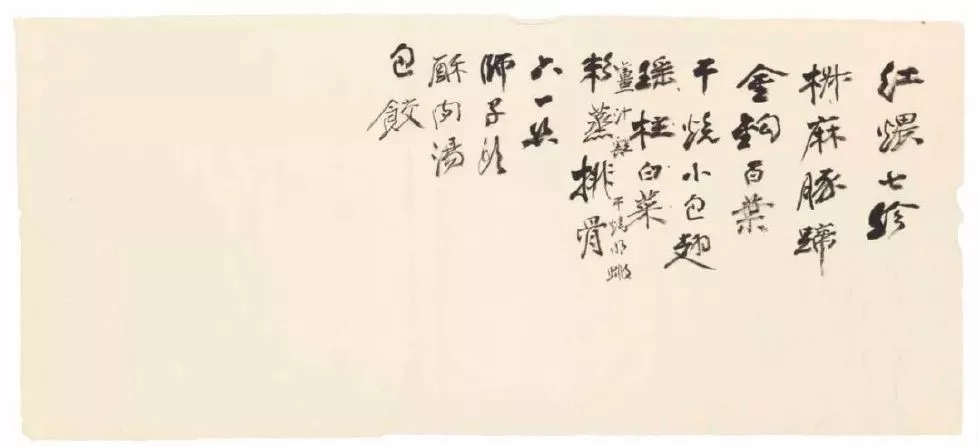 红煨七珍
椒麻豚蹄
金鉤百葉
干燒小包翅
瑤柱白菜
薑汁
干燒明蝦
粉蒸排骨
六一丝
師子头
酥肉湯
包餃